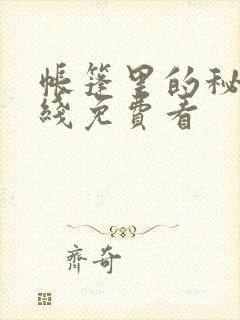 帳篷里的秘
綫免費看
齊奇